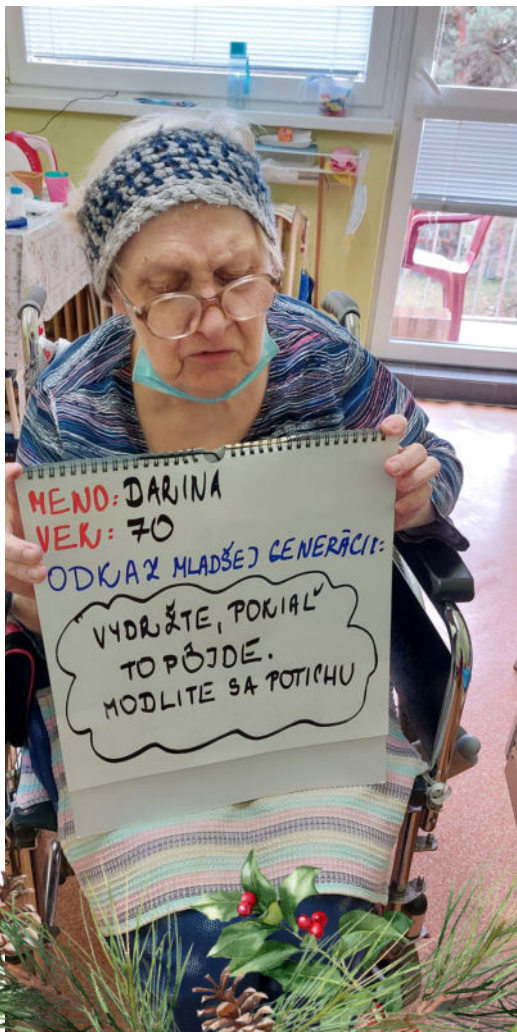 MENO: DARINA
VEK: 70
ODKAZ MLADŠEJ GENERÁCII:
VYDRŽTE, POKIAĽ
TO PÔJDE.
MODLITE SA POTICHU